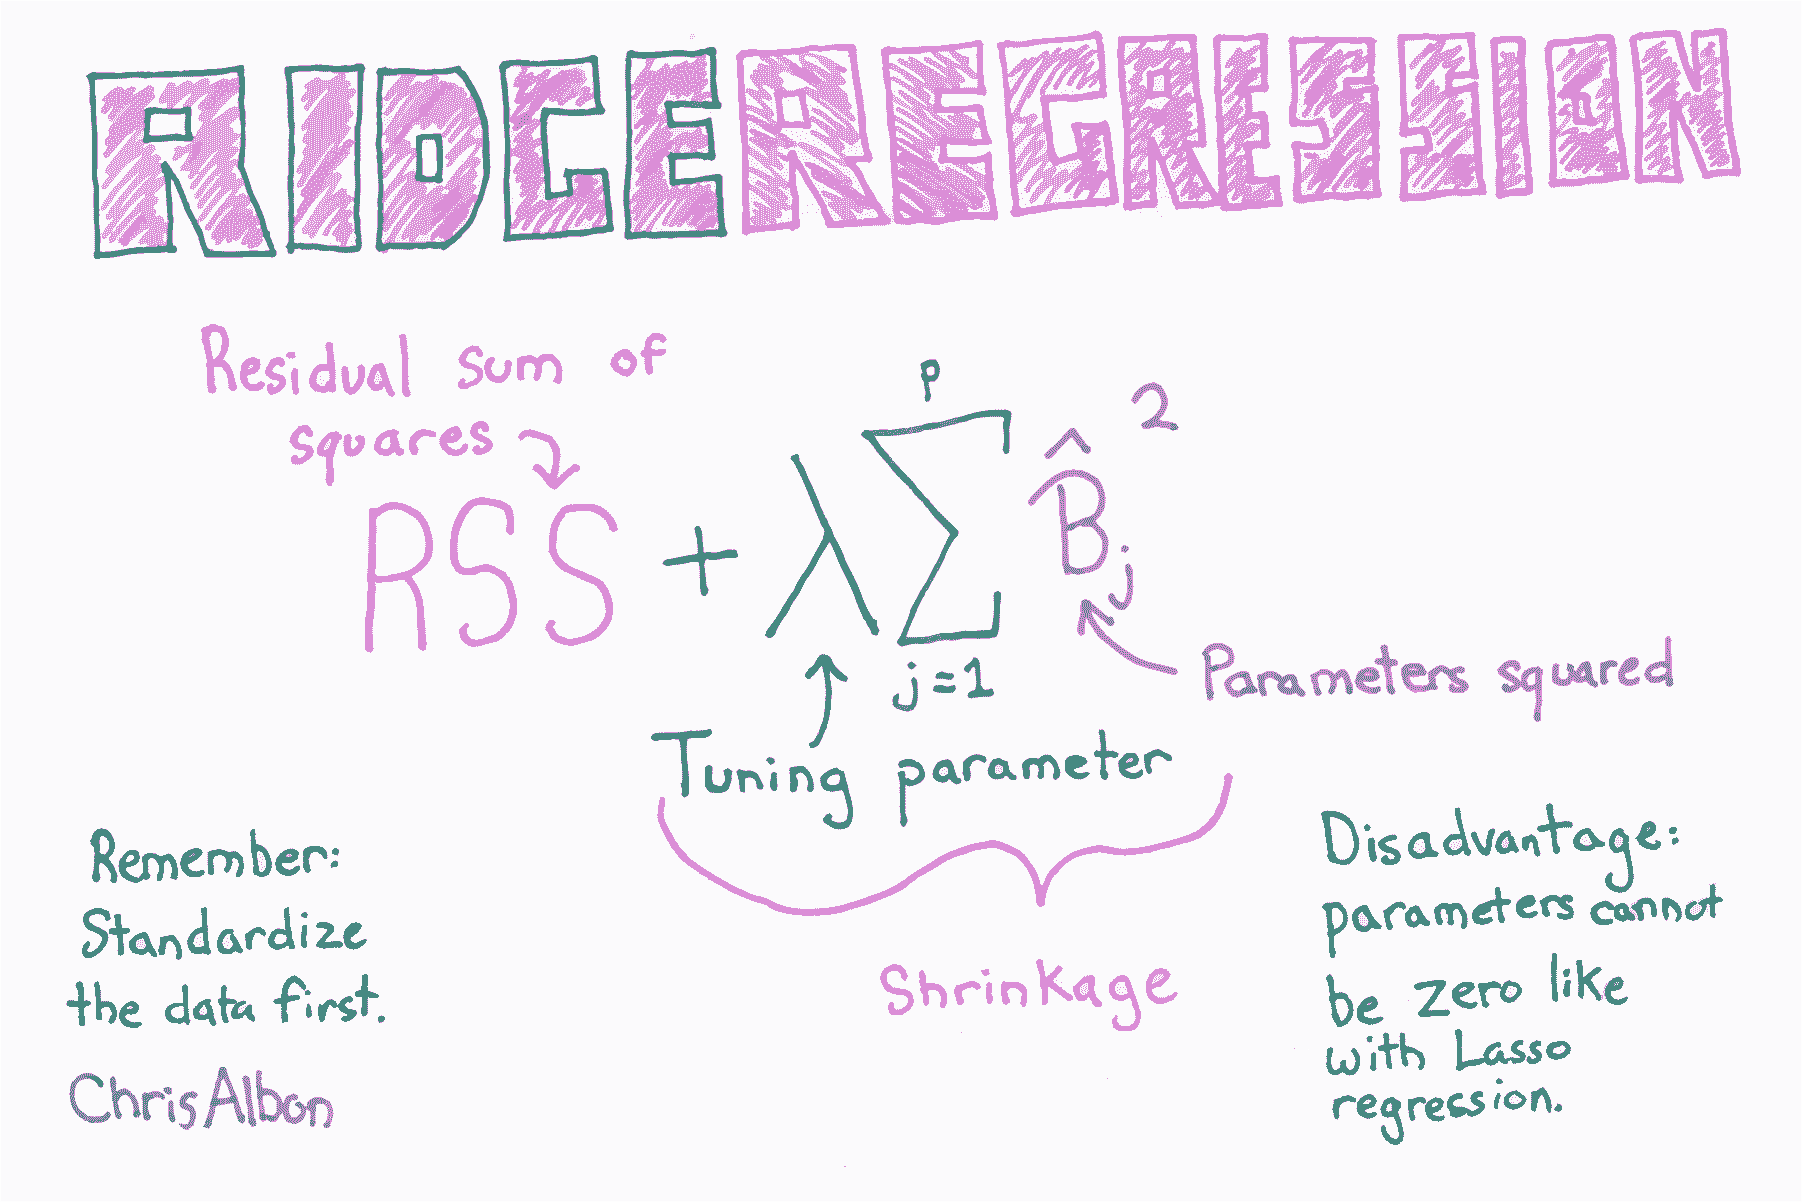 RIDGE REGRESSION
Residual sum of
squares
RSS + λ Σ B̂j²
p
j=1
Parameters squared
Tuning parameter
Shrinkage
Remember:
Standardize
the data first.
Chris Albon
Disadvantage:
parameters cannot
be zero like
with Lasso
regression.